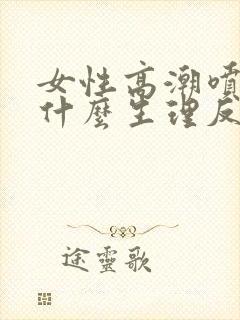 女性高潮噴
什麼生理反
途靈歌